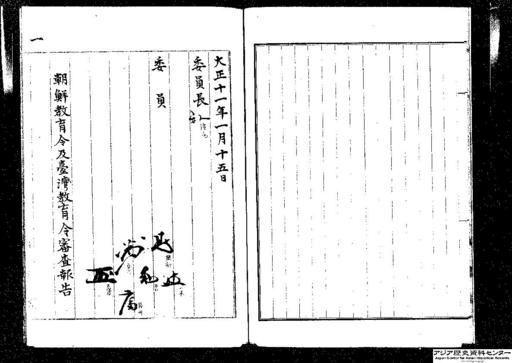 大正十一年一月十五日
委員長
委員
朝鮮教育令及臺灣教育令審査報告
一
アジア歴史資料センター
Japan Center for Asian Historical Records